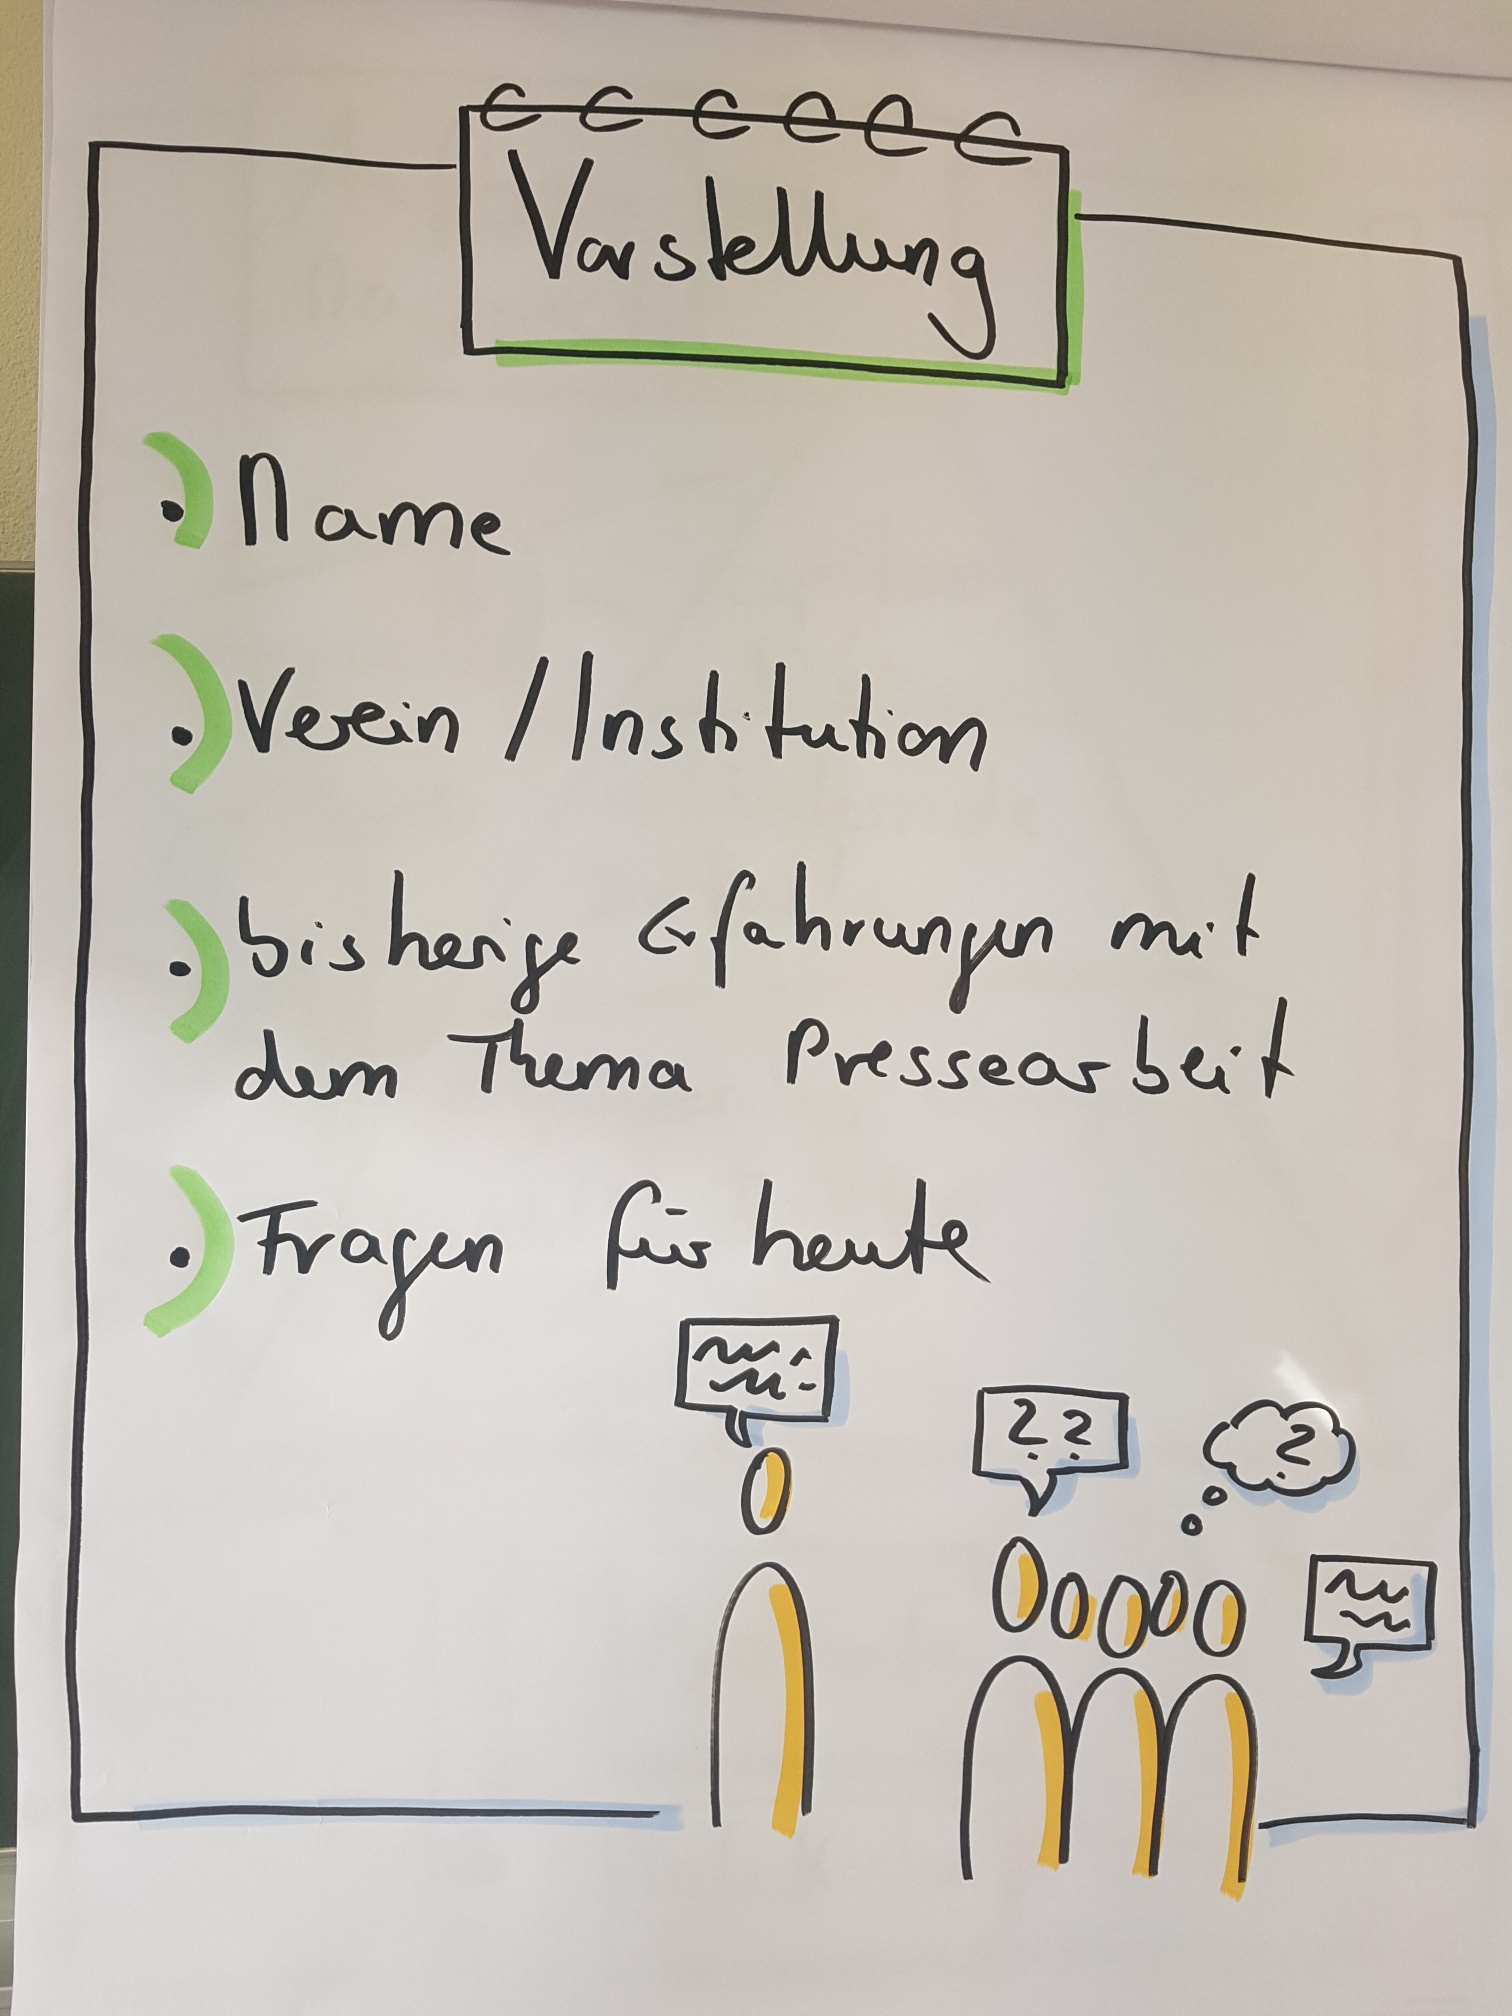 Vorstellung
• Name
• Verein / Institution
• bisherige Erfahrungen mit
dem Thema Pressearbeit
• Fragen für heute
??
?